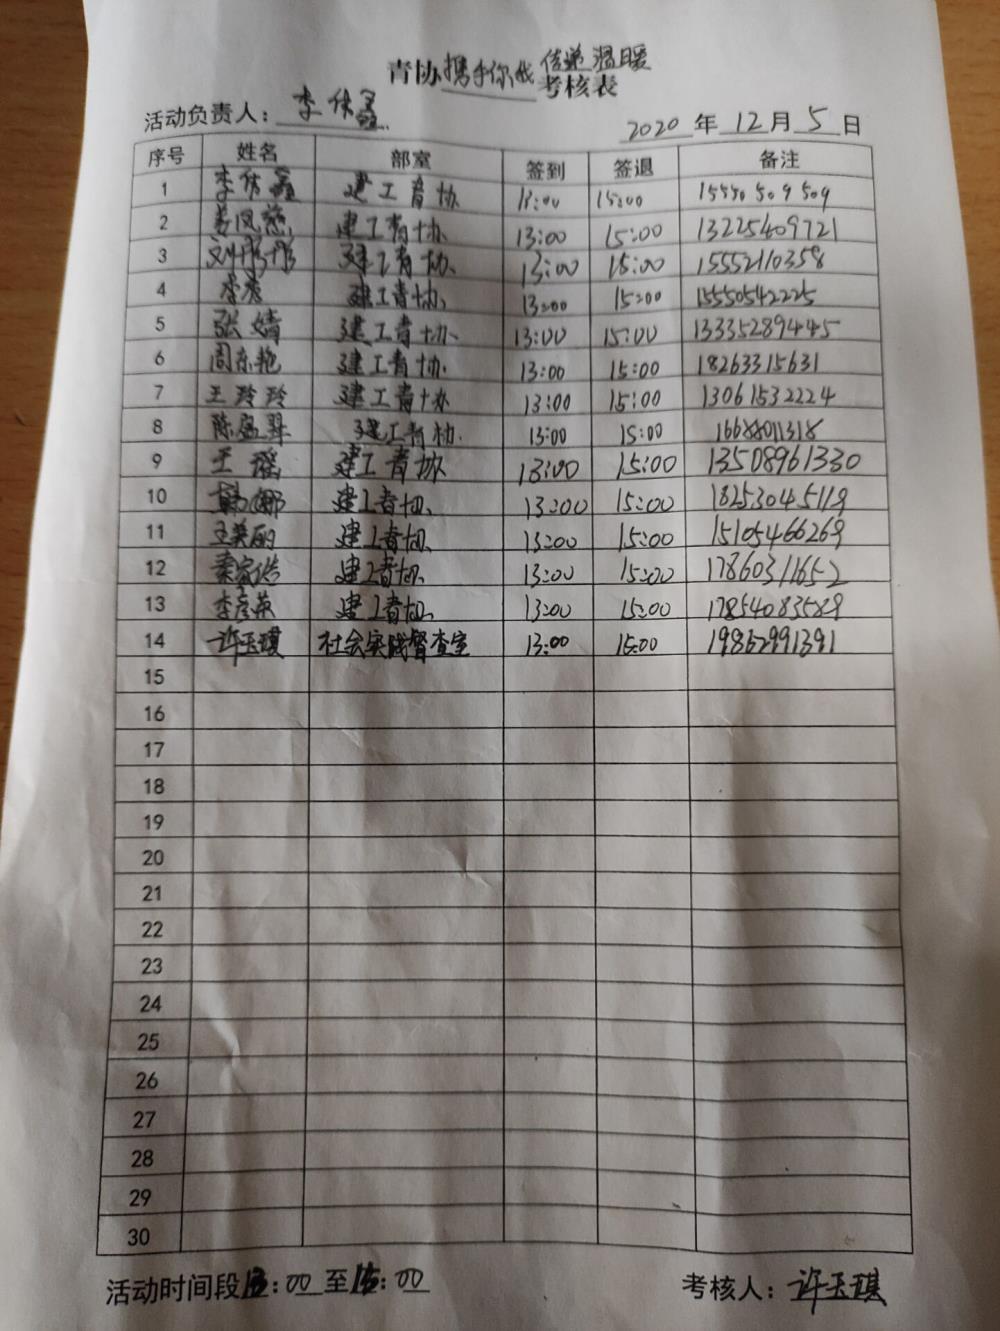 青协携手你我 传递温暖
考核表
活动负责人：李
2020 年 12 月 5 日
序号 姓名 部室 签到 签退 备注
1 李 建工青协 13:00 15:00 15550509509
2 姜凤慈 建工青协 13:00 15:00 13225409721
3 刘 建工青协 13:00 15:00 15552110358
4 李 建工青协 13:00 15:00 15550542225
5 张婧 建工青协 13:00 15:00 13335289445
6 周东艳 建工青协 13:00 15:00 18263315631
7 王玲玲 建工青协 13:00 15:00 13061532224
8 陈盈 建工青协 13:00 15:00 16688011318
9 王瑶 建工青协 13:00 15:00 13508961330
10 娜 建工青协 13:00 15:00 18253045119
11 王美丽 建工青协 13:00 15:00 15105466269
12 秦家 建工青协 13:00 15:00 17860311652
13 李彦英 建工青协 13:00 15:00 17854083589
14 许玉琪 社会实践督查室 13:00 15:00 19862991391
15
16
17
18
19
20
21
22
23
24
25
26
27
28
29
30
活动时间段 13:00 至 15:00 考核人：许玉琪